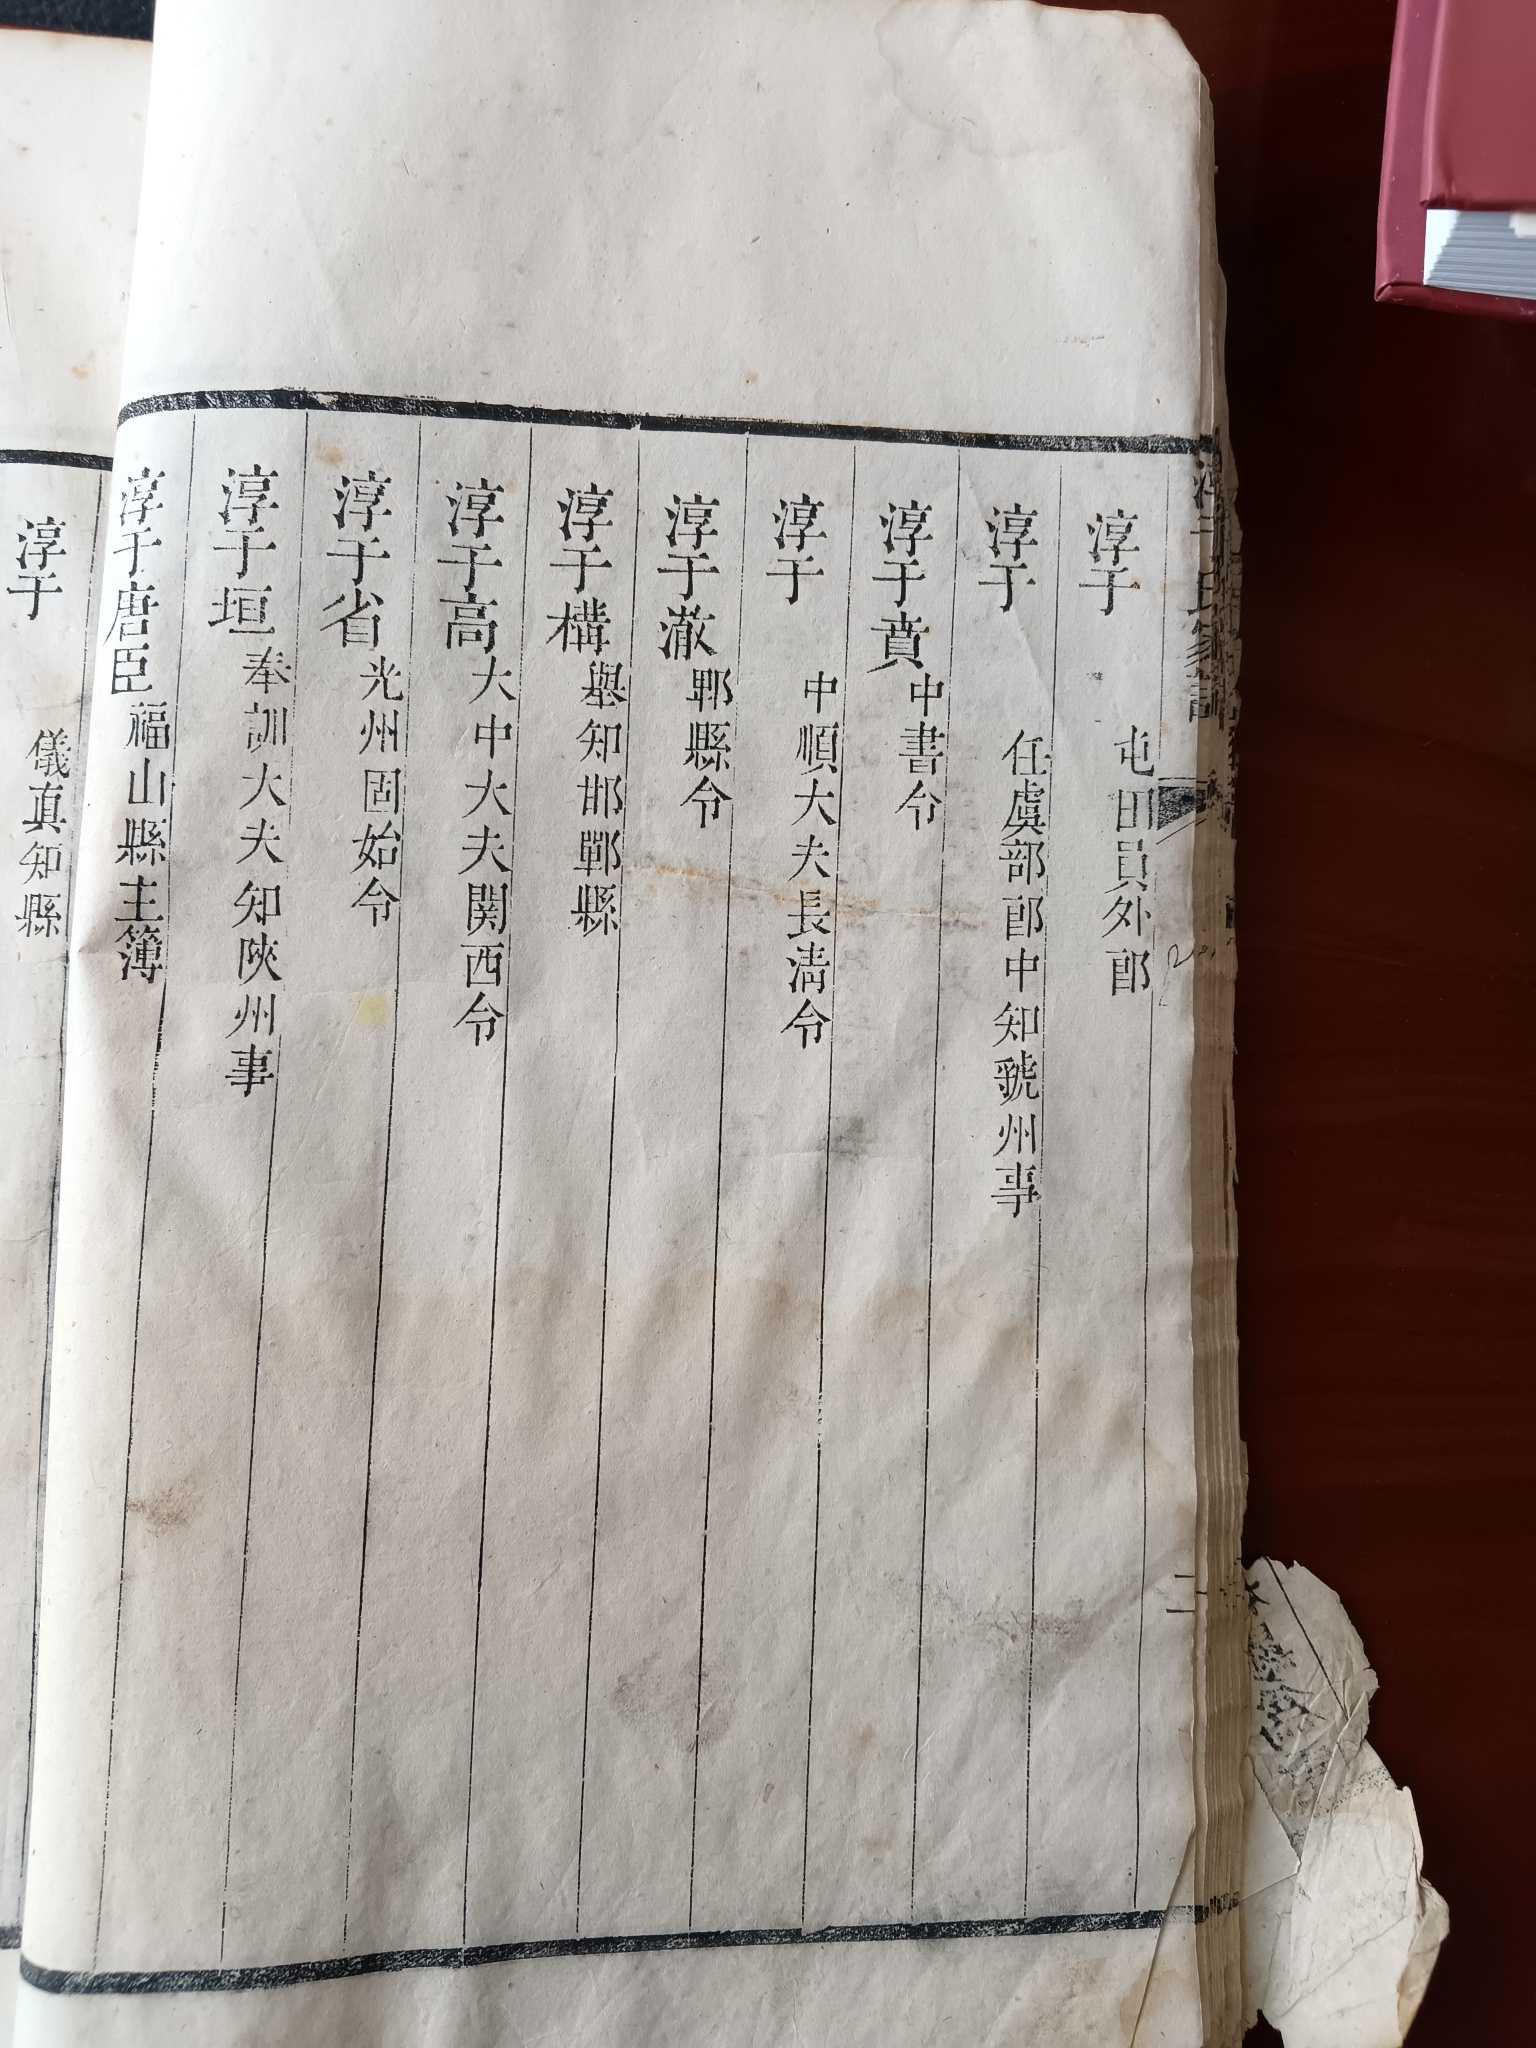 淳于氏家譜
二
淳于 屯田員外郎
淳于 任虞部郎中知虢州事
淳于賁中書令
淳于 中順大夫長淸令
淳于澈鄆縣令
淳于構舉知邯鄲縣
淳于高大中大夫関西令
淳于省光州固始令
淳于垣奉訓大夫知陝州事
淳于唐臣福山縣主簿
淳于 儀真知縣